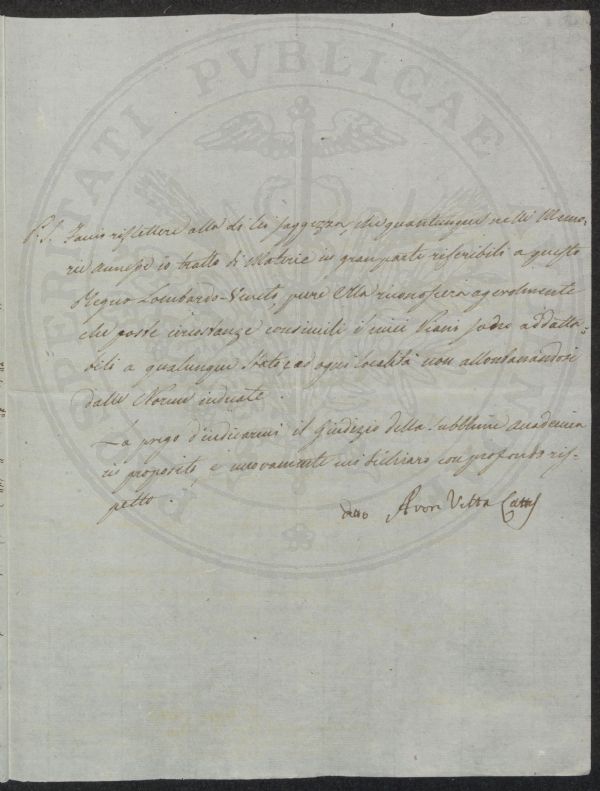 PROSPERITATI PUBLICAE
P.S. Faccio riflettere alla di lei saggezza, che quantunque nelle Memo-
rie annesse io tratto di Materie in gran parte riferibili a questo
Regno Lombardo-Veneto, pure Ella riconoscerà agevolmente
che poste circostanze consimili i miei Piani sono addatta-
bili a qualunque Stato ad ogni località non allontanandosi
dalle Norme indicate.
La prego d'indicarmi il Giudizio della Sublime Academia
in proposito, e nuovamente mi dichiaro con profondo ris-
petto.
detto Vitta